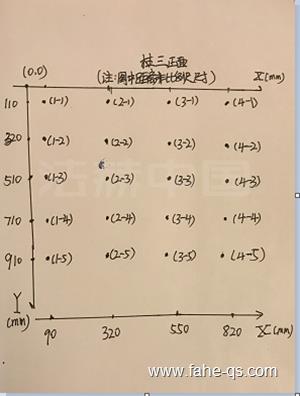 柱三正面
(注:图中距离非比例尺寸)
(0.0) X(mm)
110 (1-1) (2-1) (3-1) (4-1)
320 (1-2) (2-2) (3-2) (4-2)
510 (1-3) (2-3) (3-3) (4-3)
法赫中国
710 (1-4) (2-4) (3-4) (4-4)
910 (1-5) (2-5) (3-5) (4-5)
Y
(mm)
90 320 550 820 X(mm)
www.fahe-qs.com